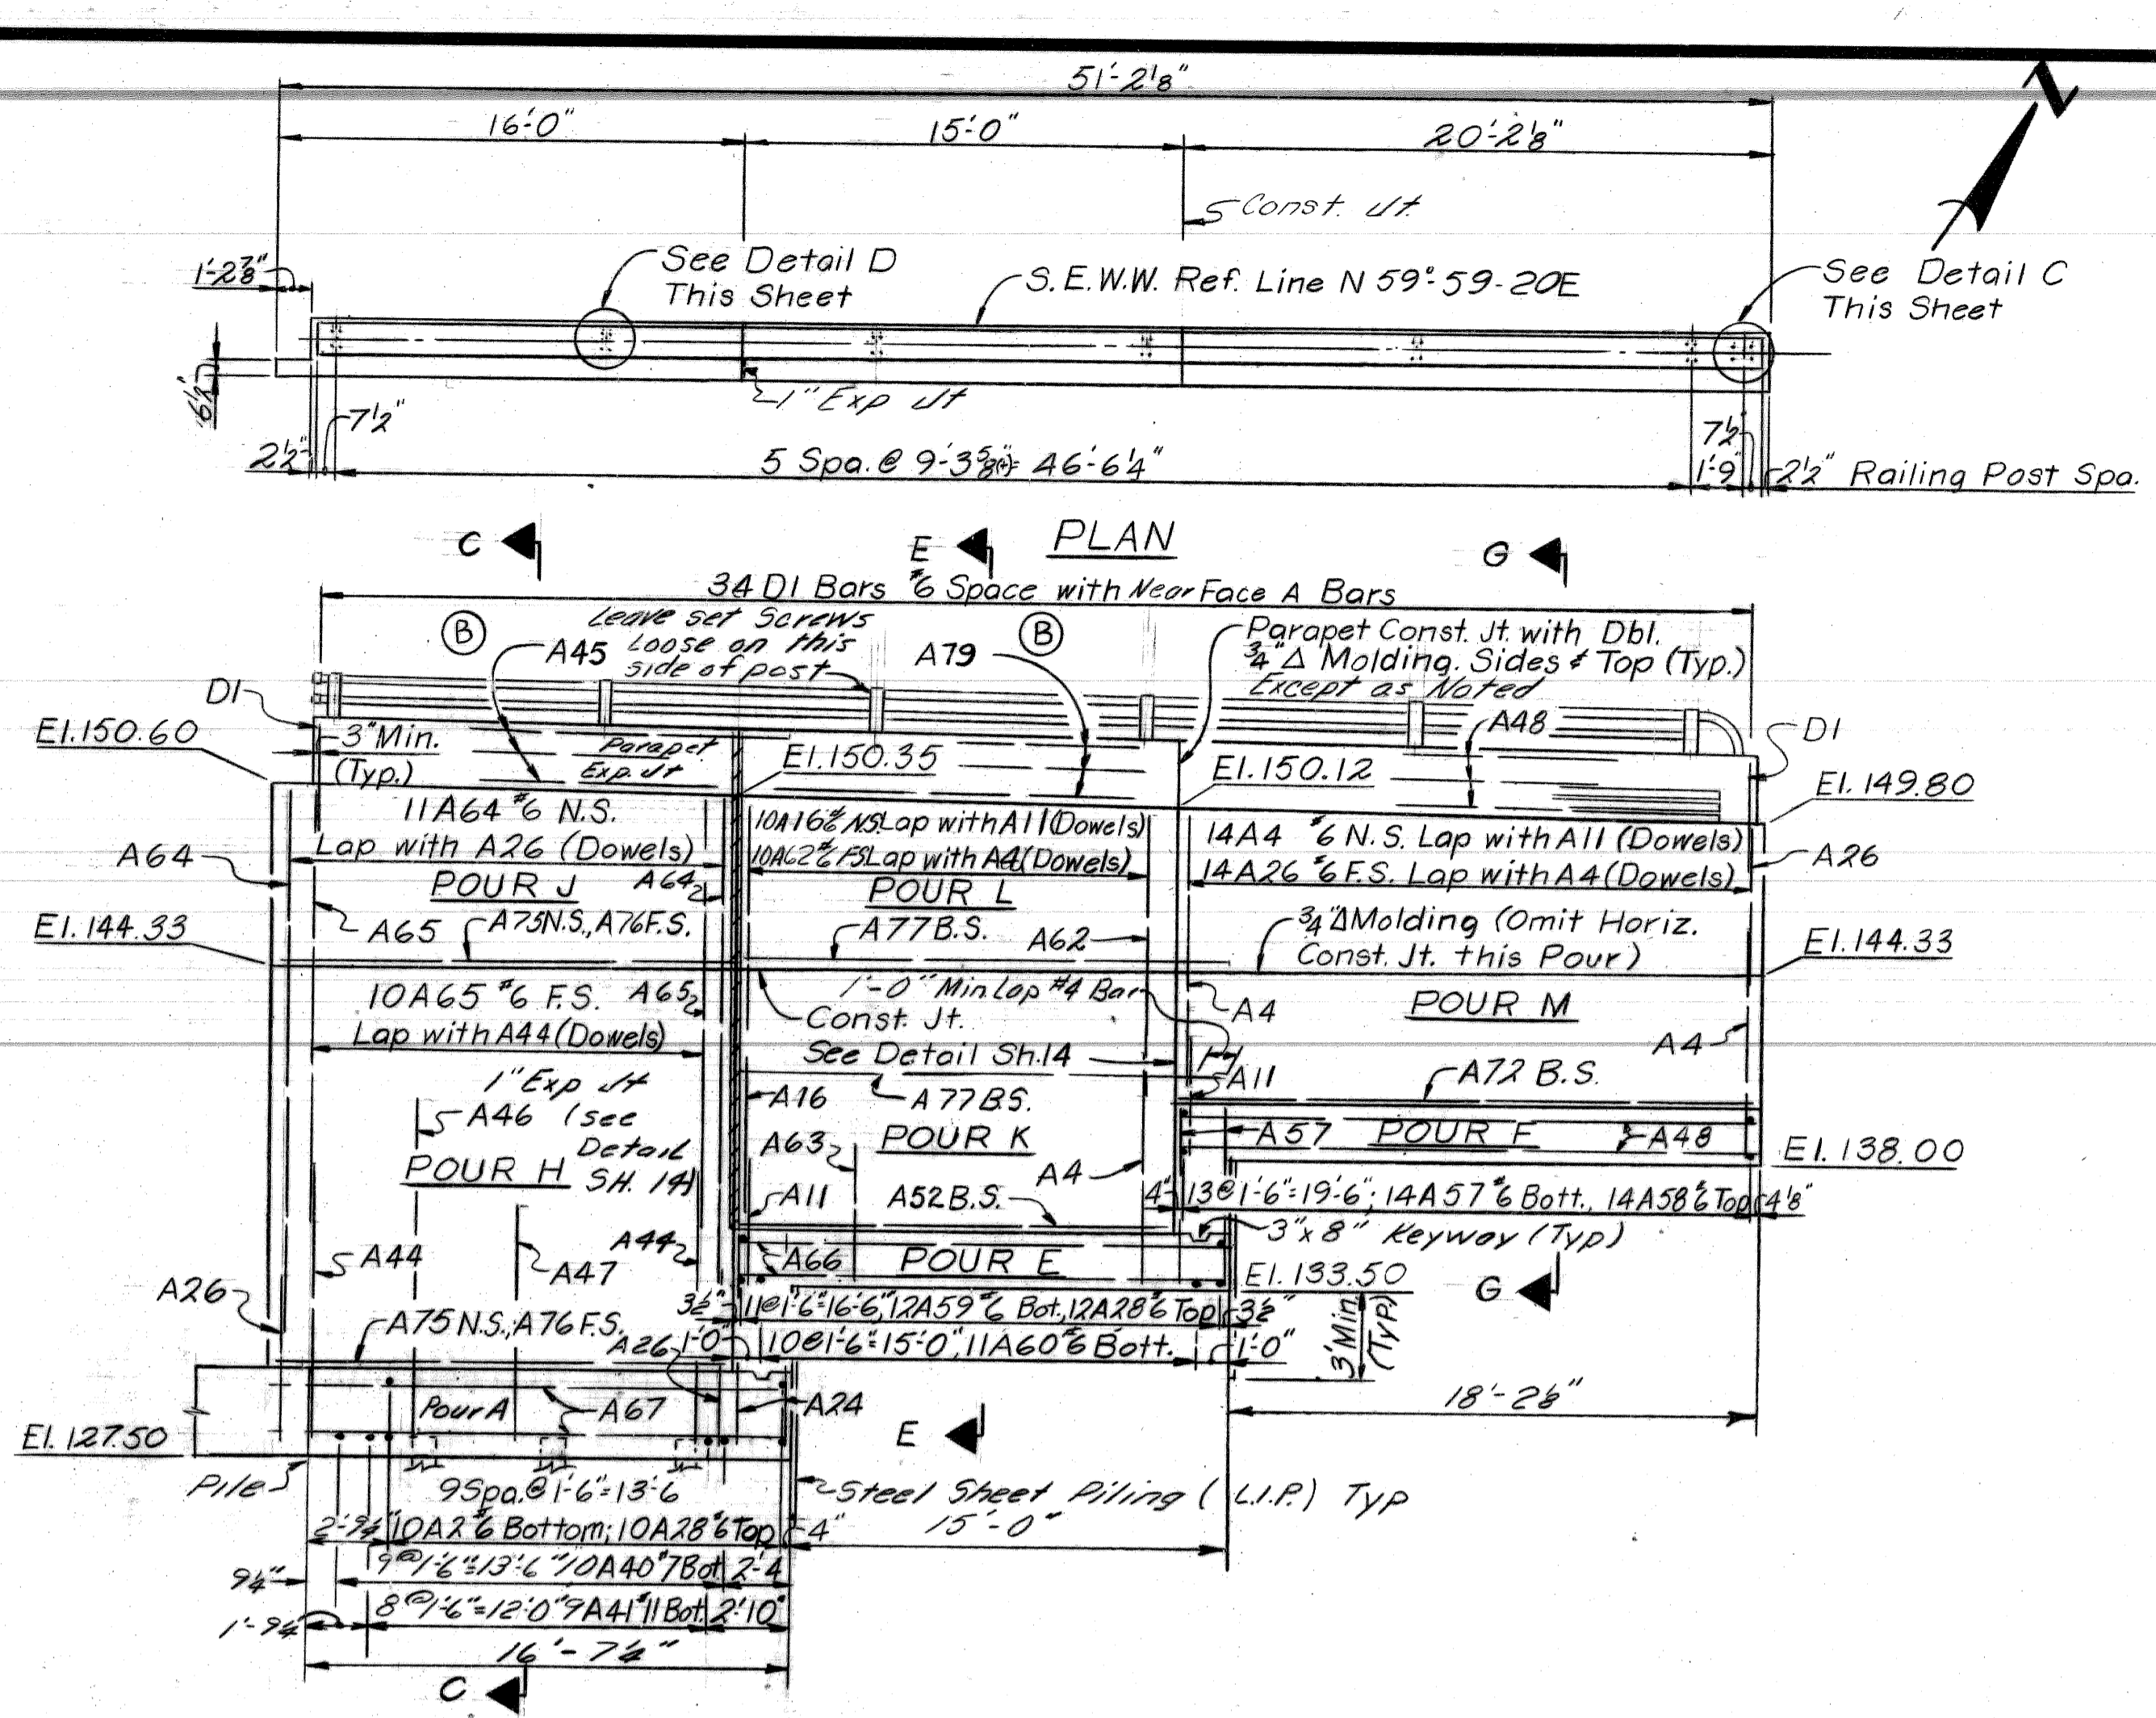 51'-2 1/8"
16'-0"
15'-0"
20'-2 1/8"
N
Const. Jt.
1'-2 7/8"
See Detail D
This Sheet
S.E.W.W. Ref. Line N 59°-59-20E
See Detail C
This Sheet
6 1/2"
1" Exp Jt
7 1/2"
2 1/2"
5 Spa. @ 9'-3 5/8"(+)= 46'-6 1/4"
7 1/2"
1'-9"
2 1/2" Railing Post Spa.
PLAN
C
E
G
34 D1 Bars #6 Space with Near Face A Bars
B
Leave set Screws
Loose on this
side of post
A45
B
A79
Parapet Const. Jt. with Dbl.
3/4" Δ Molding. Sides & Top (Typ.)
Except as Noted
D1
A48
D1
El. 150.60
3" Min.
(Typ.)
Parapet
Exp. Jt
El. 150.35
El. 150.12
El. 149.80
11A64 #6 N.S.
Lap with A26 (Dowels)
10A16 #6 N.S. Lap with A11 (Dowels)
10A62 #6 F.S. Lap with A4 (Dowels)
14A4 #6 N.S. Lap with A11 (Dowels)
14A26 #6 F.S. Lap with A4 (Dowels)
A64
POUR J
A64
POUR L
A26
El. 144.33
A65
A75 N.S., A76 F.S.
A77 B.S.
A62
3/4" Δ Molding (Omit Horiz.
Const. Jt. this Pour)
El. 144.33
10A65 #6 F.S.
A65
Lap with A44 (Dowels)
1'-0" Min. Lap #4 Bar
Const. Jt.
See Detail Sh. 14
A4
POUR M
A4
1" Exp Jt
(see
Detail
SH. 14)
A46
POUR H
A16
A77 B.S.
A11
A72 B.S.
A63
POUR K
A57
POUR F
A48
El. 138.00
A4
A11
A52 B.S.
4"
13@1'-6"=19'-6"; 14A57 #6 Bott., 14A58 #6 Top
4 1/8"
3"x8" Keyway (Typ)
A44
A47
A44
A66
POUR E
El. 133.50
G
A26
3 1/2"
11@1'-6"=16'-6", 12A59 #6 Bot., 12A28 #6 Top
3 1/2"
A75 N.S., A76 F.S.
A26
1'-0"
10@1'-6"=15'-0", 11A60 #6 Bott.
1'-0"
3' Min.
(Typ)
Pour A
A67
A24
18'-2 1/8"
El. 127.50
E
Pile
9 Spa. @ 1'-6"=13'-6
Steel Sheet Piling (L.I.P.) Typ
2'-9 1/4"
10A2 #6 Bottom; 10A28 #6 Top
4"
15'-0"
9 1/4"
9@1'-6"=13'-6" 10A40 #7 Bot.
2'-4
1'-9 1/4
8@1'-6"=12'-0" 9A41 #11 Bot.
2'-10"
16'-7 1/4"
C